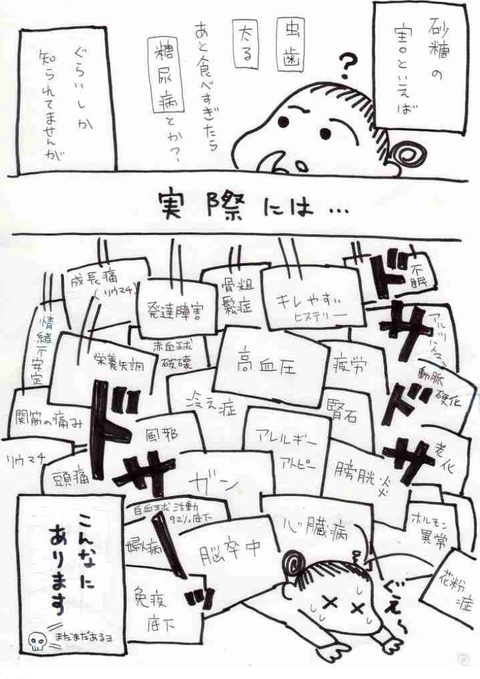 砂糖の
害といえば
?
虫歯
太る
あと食べすぎたら
糖尿病とか?
ぐらいしか
知られてませんが
実際には…
不眠
ドサドサ
キレやすい
ヒステリー
骨粗
鬆症
発達障害
成長痛
(リウマチ)
情緒不安定
アルツハイマー
動脈
硬化
疲労
高血圧
赤血球
破壊
栄養失調
腎石
冷え症
関節の痛み
風邪
アレルギー
アトピー
老化
膀胱炎
ガン
ドサーッ
リウマチ
頭痛
白血球活動
92%低下
心臓病
ホルモン
異常
脳卒中
婦人病
免疫
低下
花粉
症
ぐえ〜
こんなに
あります
まだまだあるヨ